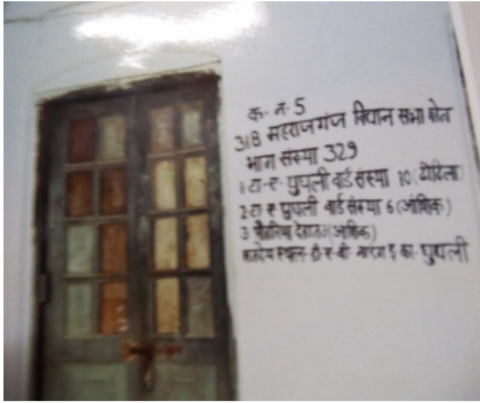 क. न. 5
318 महराजगंज विधान सभा क्षेत्र
भाग संख्या 329
1 टा. ए. घुघली वार्ड संख्या 10 (
2 टा. ए घुघली वार्ड संख्या 6 (आंशिक)
3 (आंशिक)
मतदेय स्थल- इ. का. घुघली